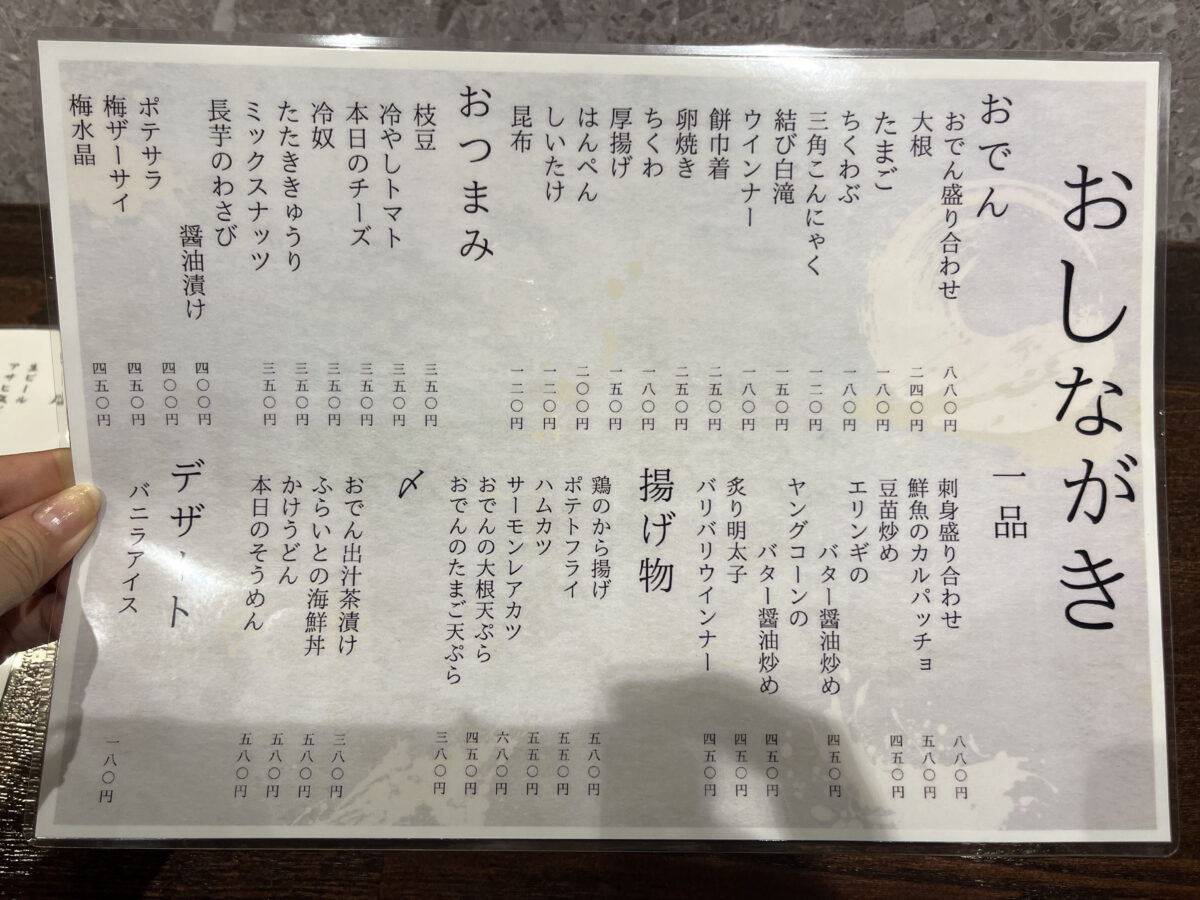 おしながき
おでん
おでん盛り合わせ 八八〇円
大根 二四〇円
たまご 一八〇円
ちくわぶ 一八〇円
三角こんにゃく 一二〇円
結び白滝 一五〇円
ウインナー 一八〇円
餅巾着 二五〇円
卵焼き 二五〇円
ちくわ 一八〇円
厚揚げ 一五〇円
はんぺん 二〇〇円
しいたけ 一二〇円
昆布 一二〇円
おつまみ
枝豆 三五〇円
冷やしトマト 三五〇円
本日のチーズ 三五〇円
冷奴 三五〇円
たたききゅうり 三五〇円
ミックスナッツ 三五〇円
長芋のわさび
醤油漬け 四〇〇円
ポテサラ 四〇〇円
梅ザーサイ 四五〇円
梅水晶 四五〇円
一品
刺身盛り合わせ 八八〇円
鮮魚のカルパッチョ 五八〇円
豆苗炒め 四五〇円
エリンギの
バター醤油炒め 四五〇円
ヤングコーンの
バター醤油炒め 四五〇円
炙り明太子 四五〇円
バリバリウインナー 四五〇円
揚げ物
鶏のから揚げ 五八〇円
ポテトフライ 五五〇円
ハムカツ 五五〇円
サーモンレアカツ 六八〇円
おでんの大根天ぷら 四五〇円
おでんのたまご天ぷら 三八〇円
〆
おでん出汁茶漬け 三八〇円
ふらいとの海鮮丼 五八〇円
かけうどん 五八〇円
本日のそうめん 五八〇円
デザート
バニラアイス 一八〇円
生ビール